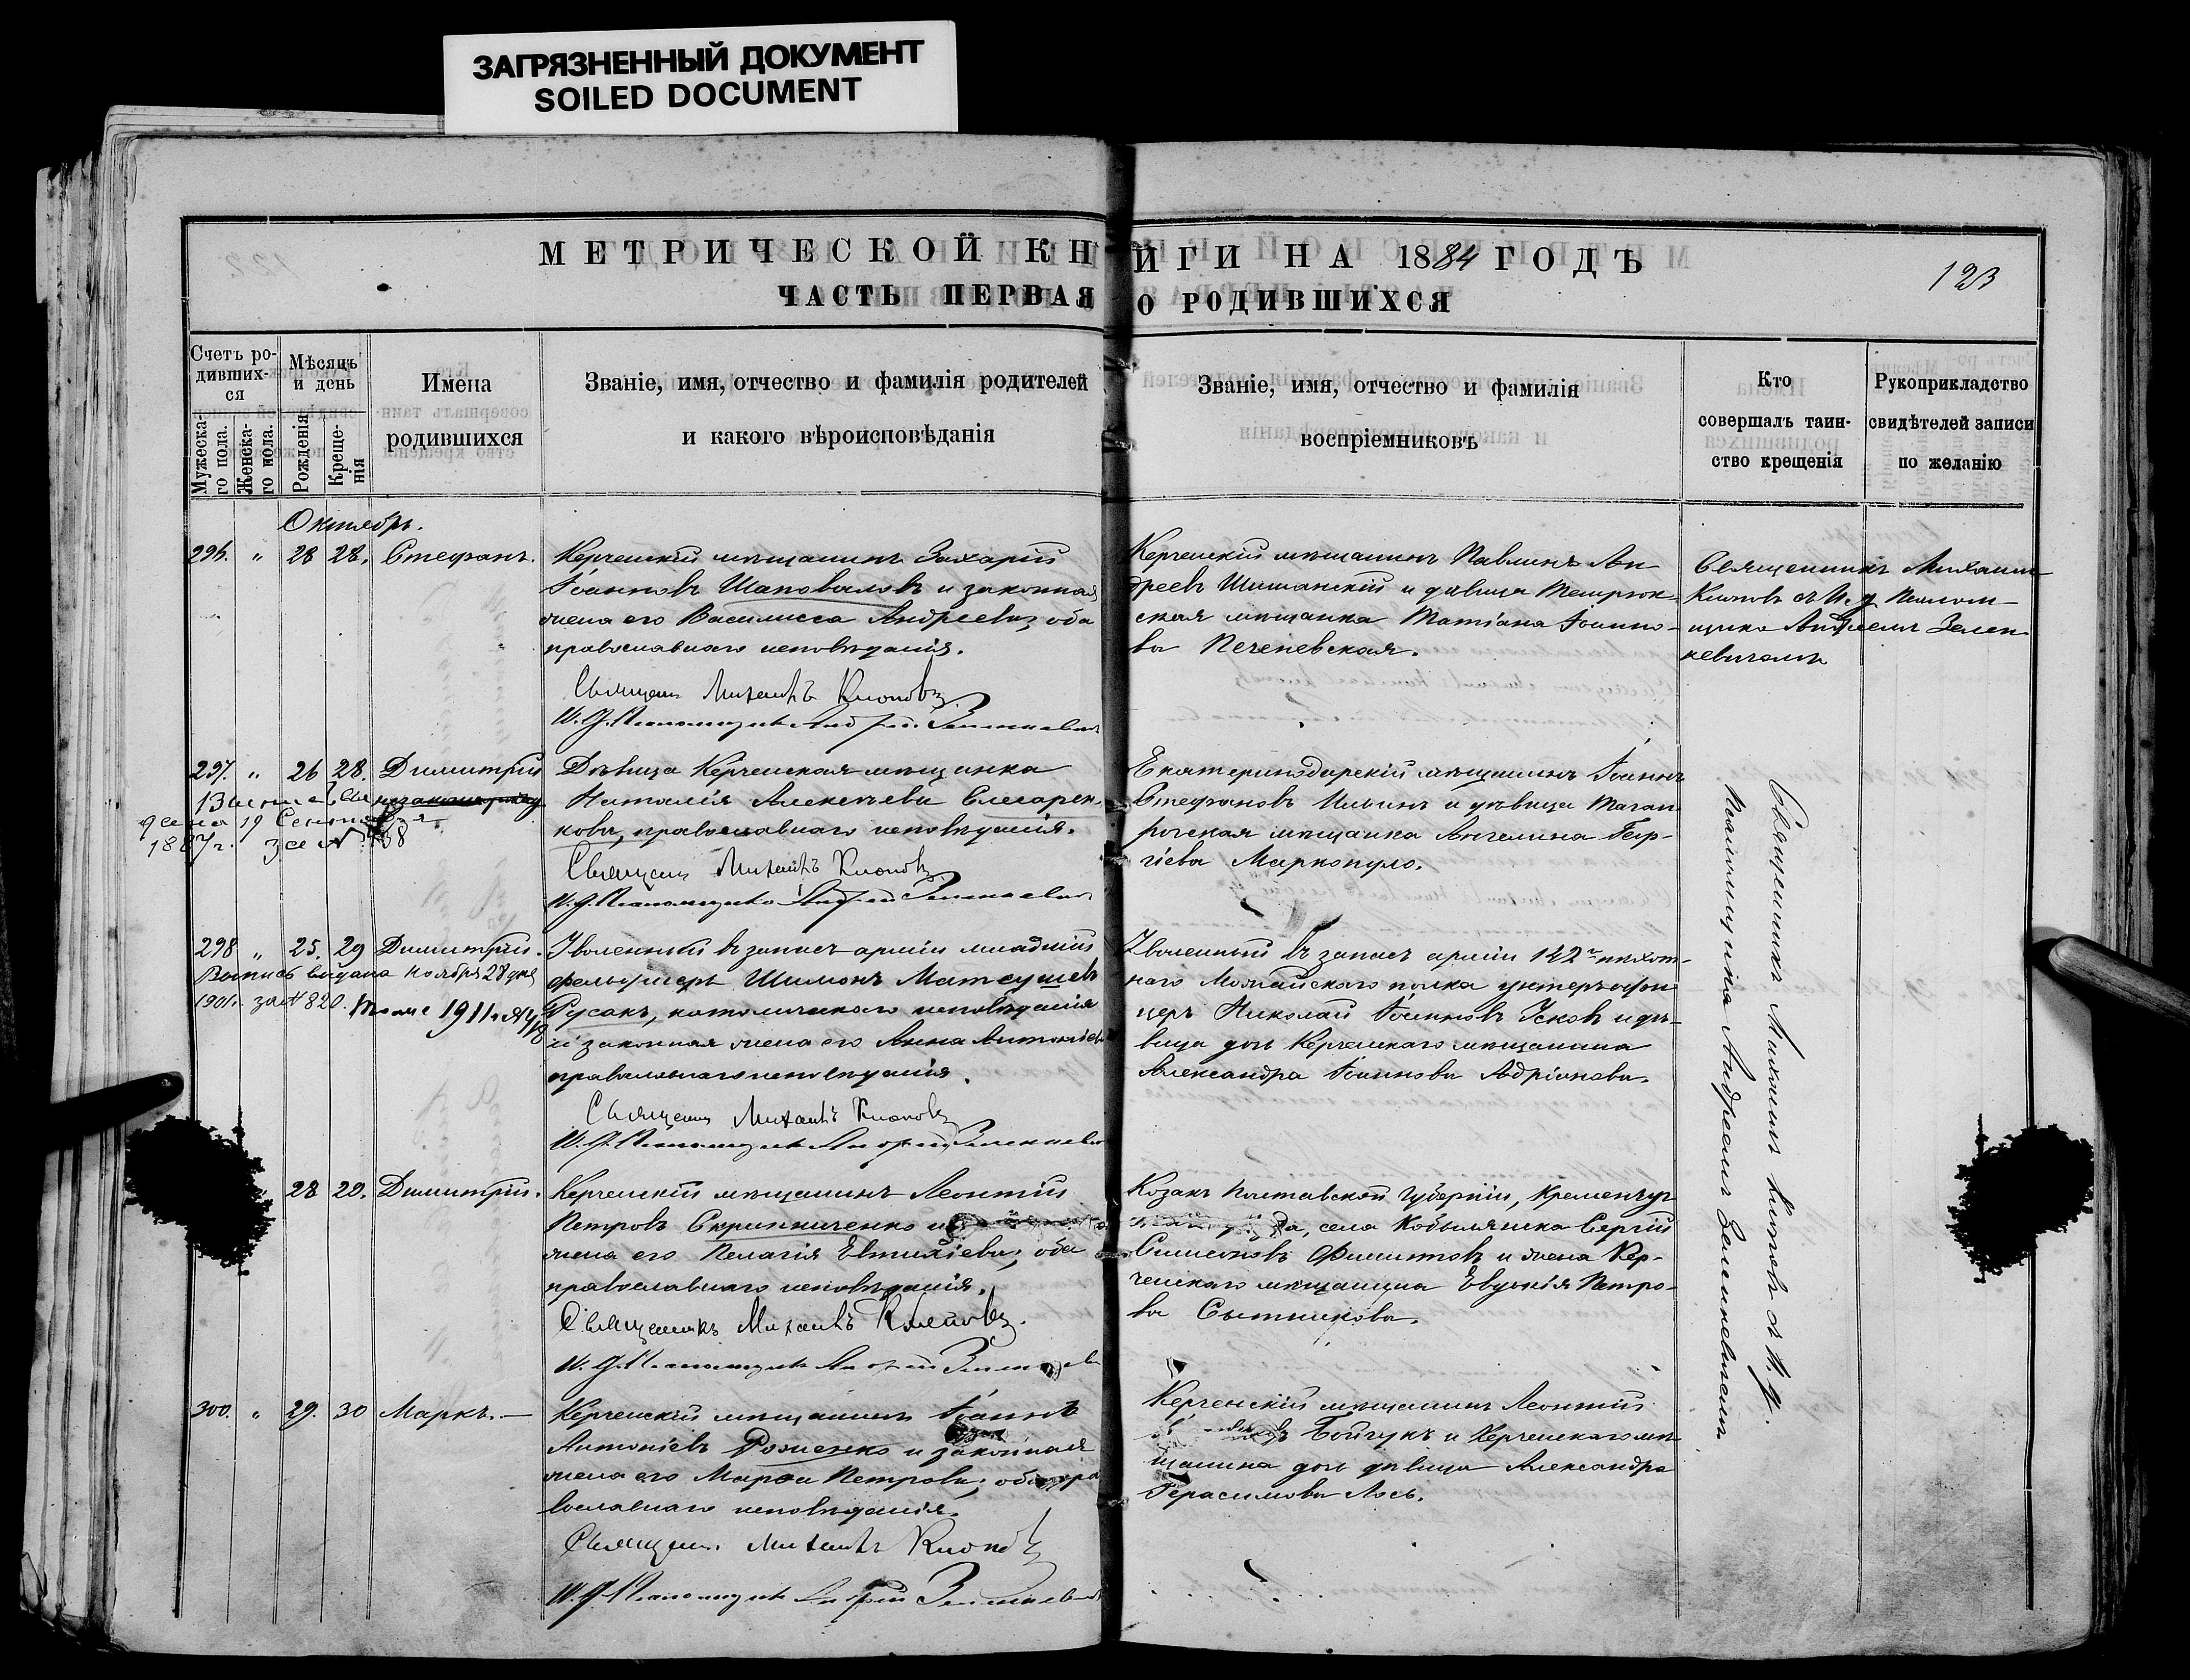 ЗАГРЯЗНЕННЫЙ ДОКУМЕНТ
SOILED DOCUMENT
МЕТРИЧЕСКОЙ КНИГИ НА 1884 ГОДЪ
123
ЧАСТЬ ПЕРВАЯ О РОДИВШИХСЯ
Счетъ ро-
дивших-
ся
Мужеска-
го пола.
Женска-
го пола.
Мѣсяцъ
и день
Рожденія
Креще-
нія
Имена
родившихся
Званіе, имя, отчество и фамилія родителей
и какого вѣроисповѣданія
Званіе, имя, отчество и фамилія
воспріемниковъ
Кто
совершалъ таин-
ство крещенія
Рукоприкладство
свидѣтелей записи
по желанію
Октябрь.
296. " 28 28. Стефанъ.
Керченскій мѣщанинъ Захарій
Іоанновъ Шаповаловъ и законная
жена его Василисса Андреева, оба
православнаго исповѣданія.
Священ Михаилъ Клоповъ
И. д. Псаломщика Андрей Зеленкевичъ
Керченскій мѣщанинъ Павлинъ Ан
дреевъ Шишанскій и дѣвица Темрюк-
ская мѣщанка Татіана Іоанно-
ва Печеневская.
Священникъ Михаилъ
Клоповъ съ И. д. Псалом-
щика Андреемъ Зелен-
кевичемъ
297. " 26 28. Димитрій
19 Сентя
1887 г. за № 458
Дѣвица Керченская мѣщанка
Наталія Алексѣева Слесарен-
кова, православнаго исповѣданія.
Священ Михаилъ Клоповъ
И. д. Псаломщика Андрей Зеленкевичъ
Екатеринодарскій мѣщанинъ Іоаннъ
Стефановъ Ильинъ и дѣвица Таган
рогская мѣщанка Ангелина Геор-
гіева Маркопуло.
298 " 25. 29 Димитрій.
Выпись выдана ноября 28 дня
1901 г. за № 820.
Уволенный въ запасъ арміи младшій
фельдшеръ Шимонъ Матеушевъ
Русакъ, католическаго исповѣданія
и законная жена его Анна Антоніева
православнаго исповѣданія.
Священ Михаилъ Клоповъ
И. д. Псаломщика Андрей Зеленкевичъ
Уволенный въ запасъ арміи 142го пѣхот-
наго Можайскаго полка унтеръ-офи
церъ Николай Іоанновъ Усковъ и дѣ-
вица дочь Керченскаго мѣщанина
Александра Іоаннова Адріанова.
Священникъ Михаилъ Клоповъ съ И. д.
Псаломщика Андреемъ Зеленкевичемъ
28 29. Димитрій.
Керченскій мѣщанинъ Леонтій
Петровъ Скрипниченко и
жена его Пелагія Евтихіева; оба
православнаго исповѣданія.
Священникъ Михаилъ Клоповъ.
И. д. Псаломщика Андрей
Козакъ Полтавской губерніи, Кременчуг
села Кобылянска Сергій
Симеоновъ Филиповъ и жена Кер-
ченскаго мѣщанина Евдокія Петро-
ва Сытникова.
300. " 29. 30 Маркъ. —
Керченскій мѣщанинъ Іоаннъ
Антоніевъ Роженко и законная
жена его Марѳа Петрова; оба пра
вославнаго исповѣданія.
Священ. Михаилъ Клоповъ
И. д. Псаломщика Андрей Зеленкевичъ
Керченскій мѣщанинъ Леонтій
Бойчукъ и Керченскаго мѣ
щанина дочь дѣвица Александра
Герасимова Лось.